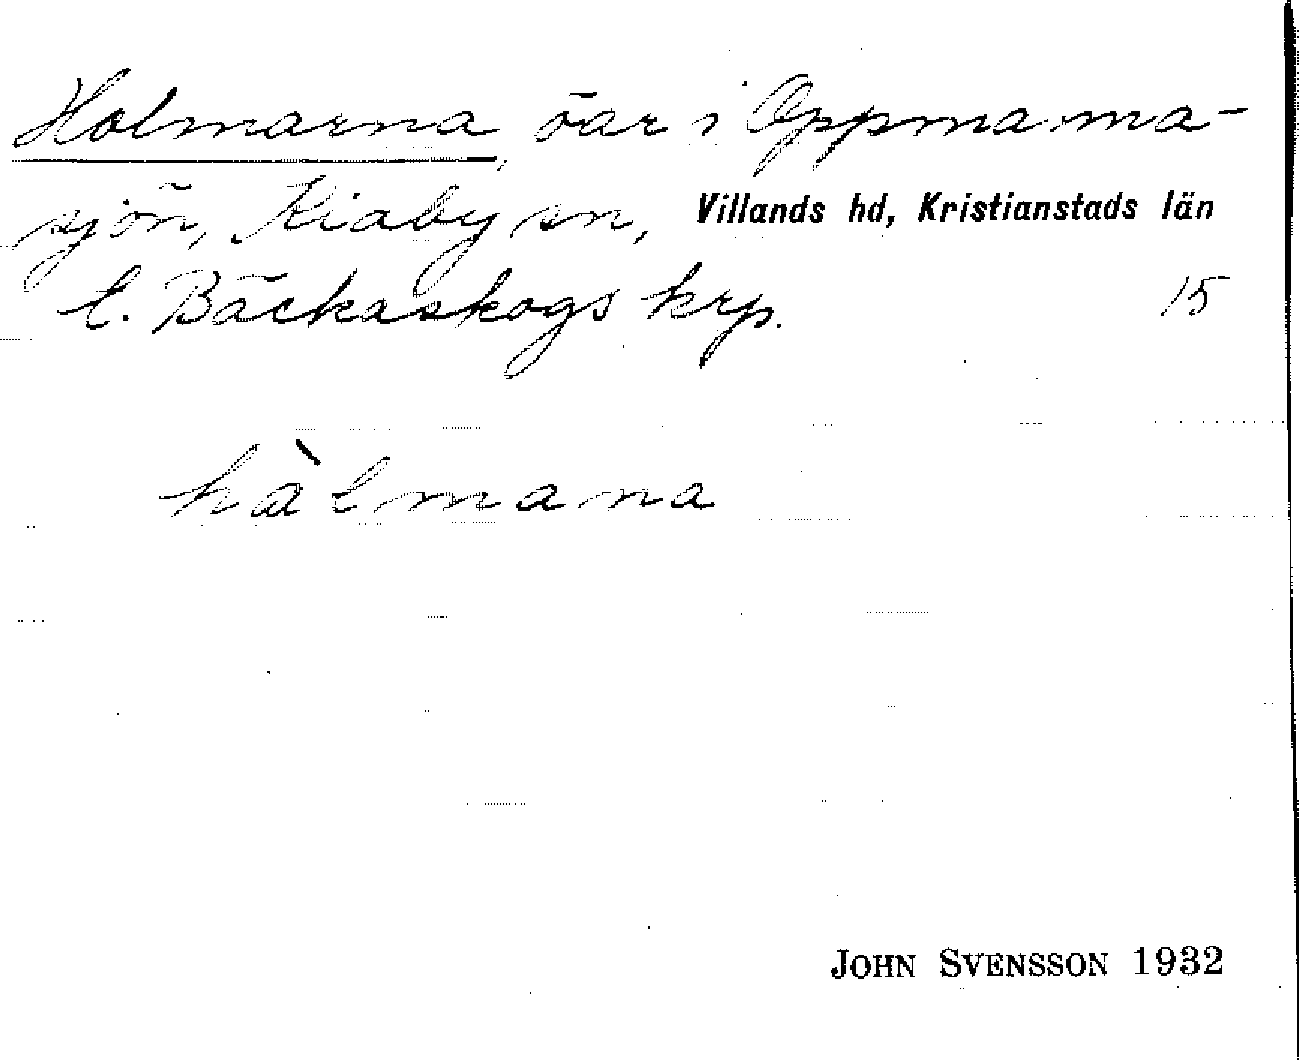 Holmarna, öar i Oppmanna-
sjön, Kiaby sn, Villands hd, Kristianstads län
l. Bäckaskogs krp. 15
hàlmana
JOHN SVENSSON 1932